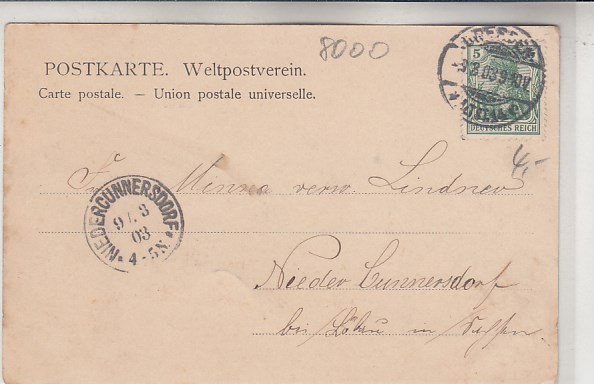 8000
POSTKARTE. Weltpostverein.
Carte postale. – Union postale universelle.
DRESDEN
5
9.3.03.9-10V.
DEUTSCHES REICH
4,-
Frau Minna verw. Lindner
NIEDERCUNNERSDORF
9/. 3
03
* 4-5N. *
Nieder Cunnersdorf
bei Löbau in Sachsen.